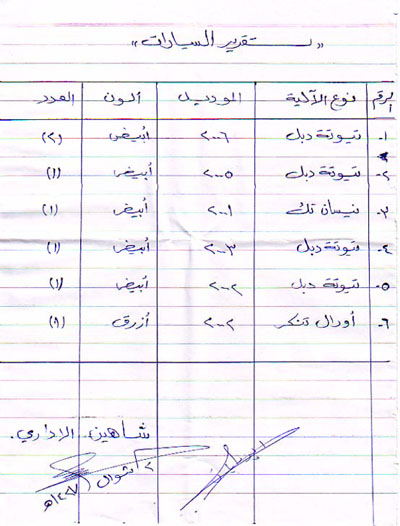 «تقرير السيارات»
الرقم نوع الآلية الموديل اللون العدد
١- تيوتة دبل ٢٠٠٦ أبيض (٢)
٢- تيوتة دبل ٢٠٠٥ أبيض (١)
٣- نيسان تك ٢٠٠١ أبيض (١)
٤- تيوتة دبل ٢٠٠٣ أبيض (١)
٥- تيوتة دبل ٢٠٠٢ أبيض (١)
٦- أورال تنكر ٢٠٠٢ أزرق (١)
شاهين الاداري.
٢ شوال ١٤٢٧هـ